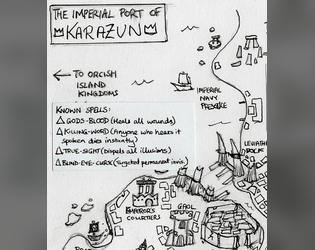 THE IMPERIAL PORT OF
KARAZUN
← TO ORCISH
ISLAND
KINGDOMS
IMPERIAL
NAVY
PRESENCE
KNOWN SPELLS:
△ GODS-BLOOD (Heals all wounds)
△ KILLING-WORD (Anyone who hears it
spoken dies instantly)
△ TRUE-SIGHT (dispels all illusions)
△ BLIND-EYE-CURSE (targeted permanent
LEVIATHAN
EMPEROR'S
COURTIERS
GAOL